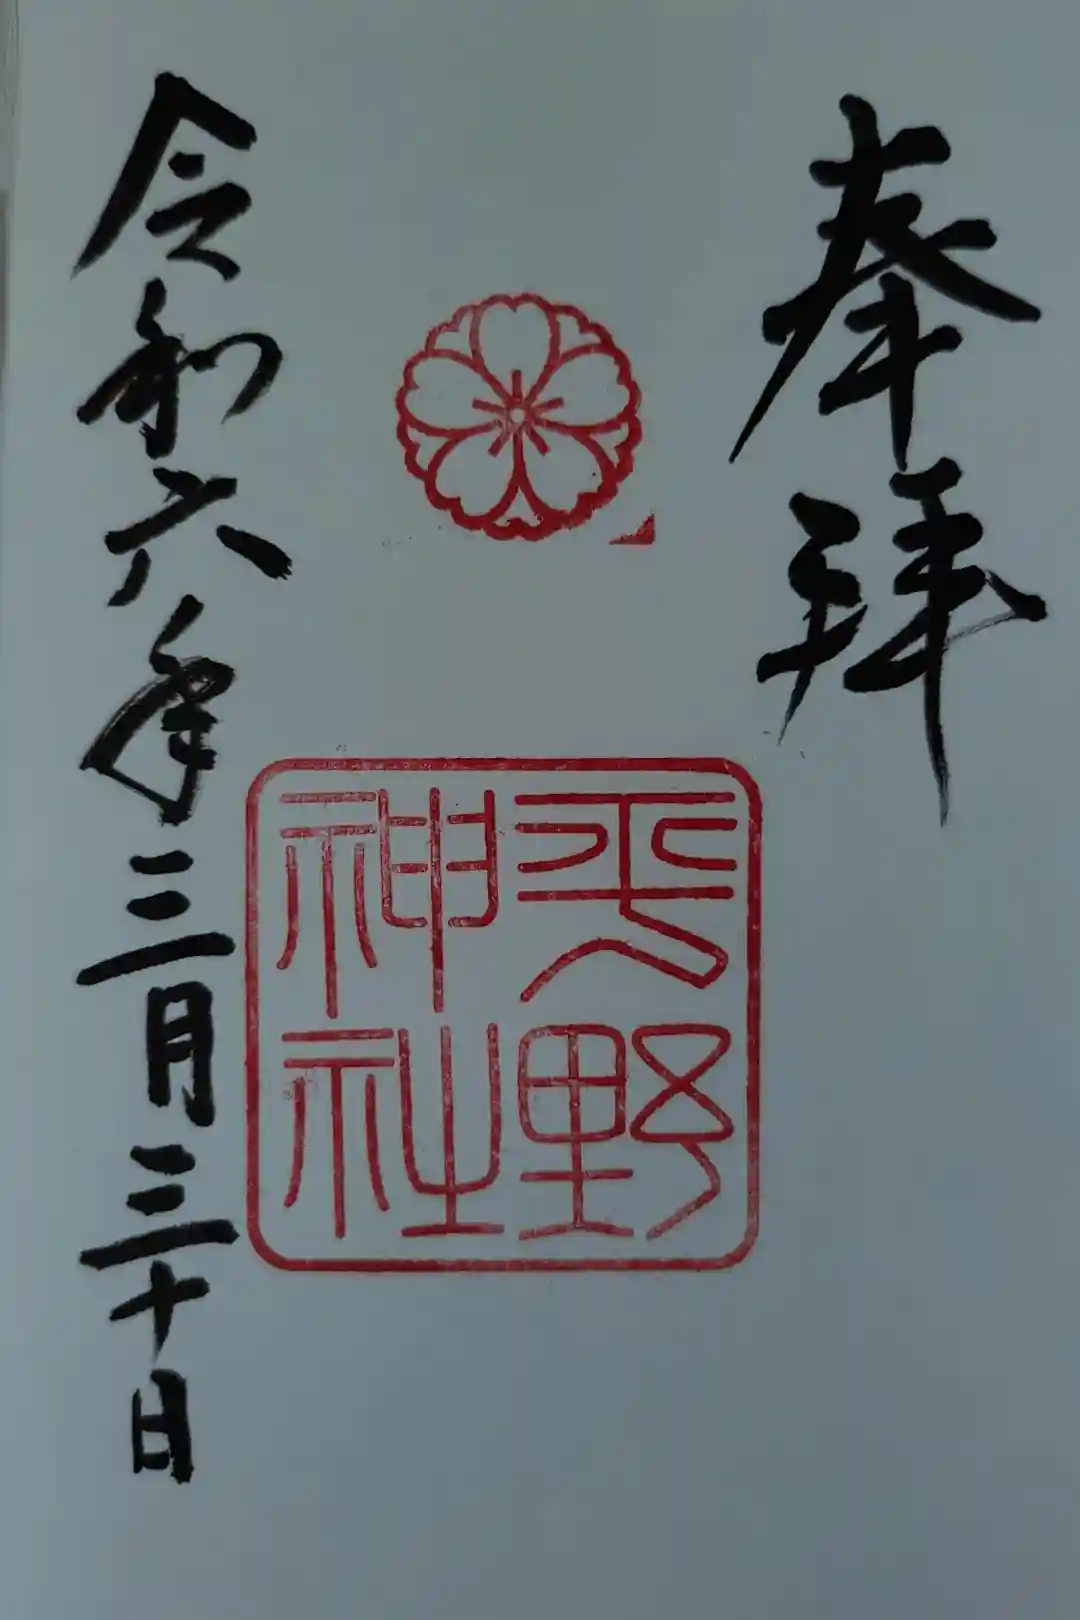 奉拝
平野
神社
令和六年三月三十日